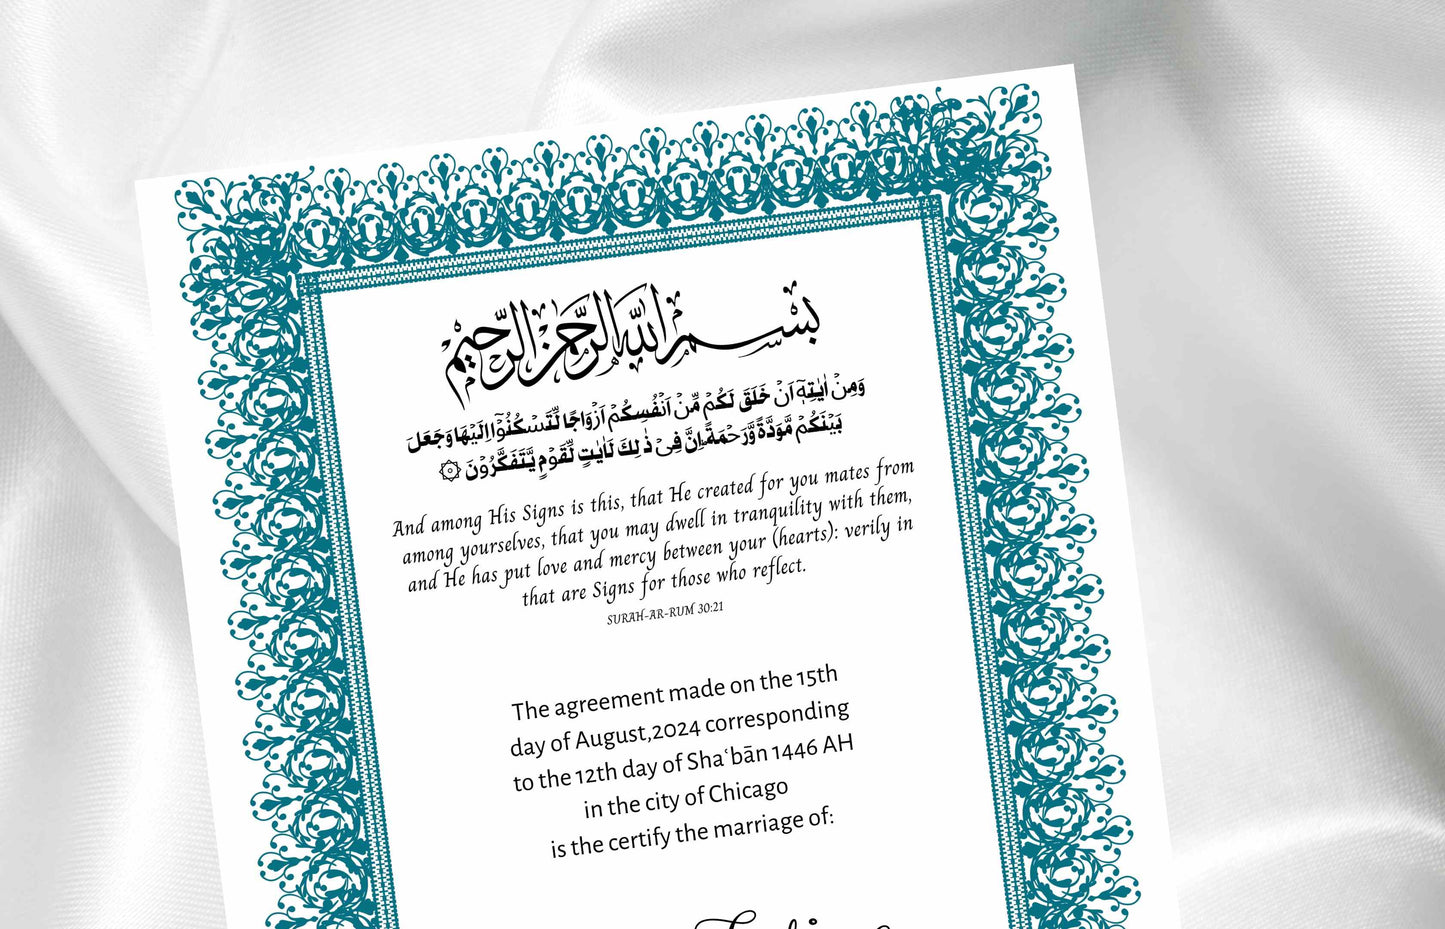 بسم الله الرحمن الرحيم
وَمِنْ اٰيٰتِهٖٓ اَنْ خَلَقَ لَكُمْ مِّنْ اَنْفُسِكُمْ اَزْوَاجًا لِّتَسْكُنُوْٓا اِلَيْهَا وَجَعَلَ
بَيْنَكُمْ مَّوَدَّةً وَّرَحْمَةً ۗاِنَّ فِيْ ذٰلِكَ لَاٰيٰتٍ لِّقَوْمٍ يَّتَفَكَّرُوْنَ ۞
And among His Signs is this, that He created for you mates from
among yourselves, that you may dwell in tranquility with them,
and He has put love and mercy between your (hearts): verily in
that are Signs for those who reflect.
SURAH-AR-RUM 30:21
The agreement made on the 15th
day of August,2024 corresponding
to the 12th day of Shaʿbān 1446 AH
in the city of Chicago
is the certify the marriage of: